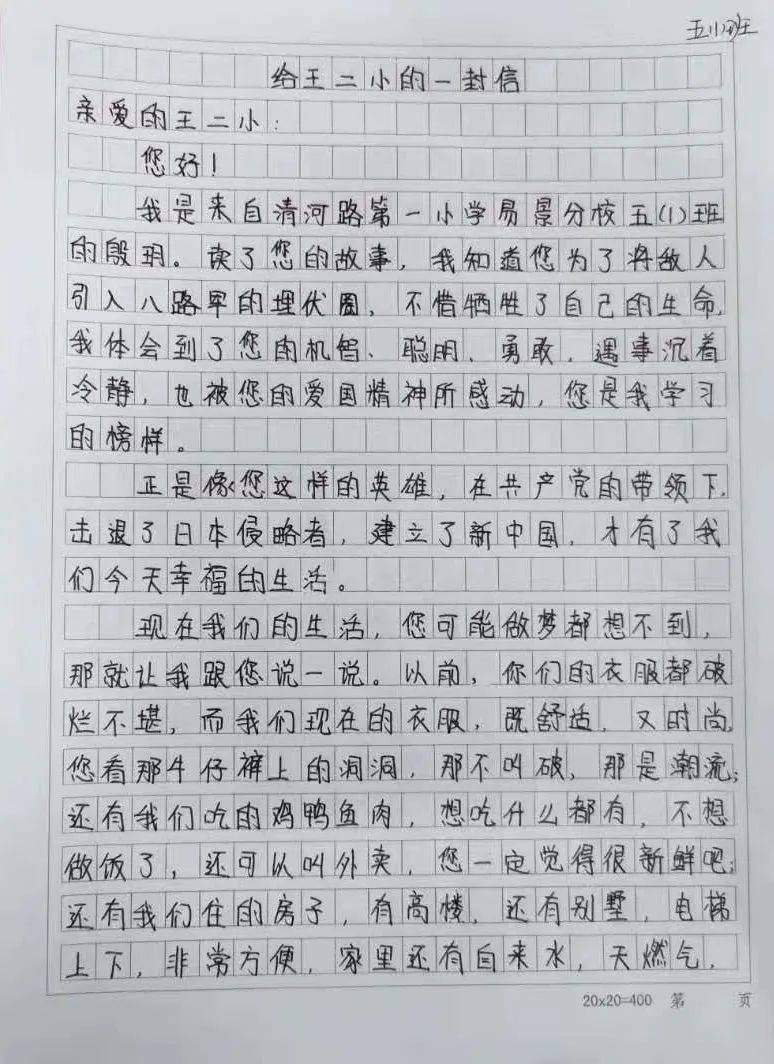 五(1)班
给王二小的一封信
亲爱的王二小：
您好！
我是来自清河路第一小学易景分校五(1)班
的殷玥。读了您的故事，我知道您为了将敌人
引入八路军的埋伏圈，不惜牺牲了自己的生命，
我体会到了您的机智、聪明、勇敢，遇事沉着
冷静，也被您的爱国精神所感动，您是我学习
的榜样。
正是像您这样的英雄，在共产党的带领下，
击退了日本侵略者，建立了新中国，才有了我
们今天幸福的生活。
现在我们的生活，您可能做梦都想不到，
那就让我跟您说一说。以前，你们的衣服都破
烂不堪，而我们现在的衣服，既舒适，又时尚，
您看那牛仔裤上的洞洞，那不叫破，那是潮流；
还有我们吃的鸡鸭鱼肉，想吃什么都有，不想
做饭了，还可以叫外卖，您一定觉得很新鲜吧；
还有我们住的房子，有高楼，还有别墅，电梯
上下，非常方便，家里还有自来水，天燃气，
20×20=400 第 页